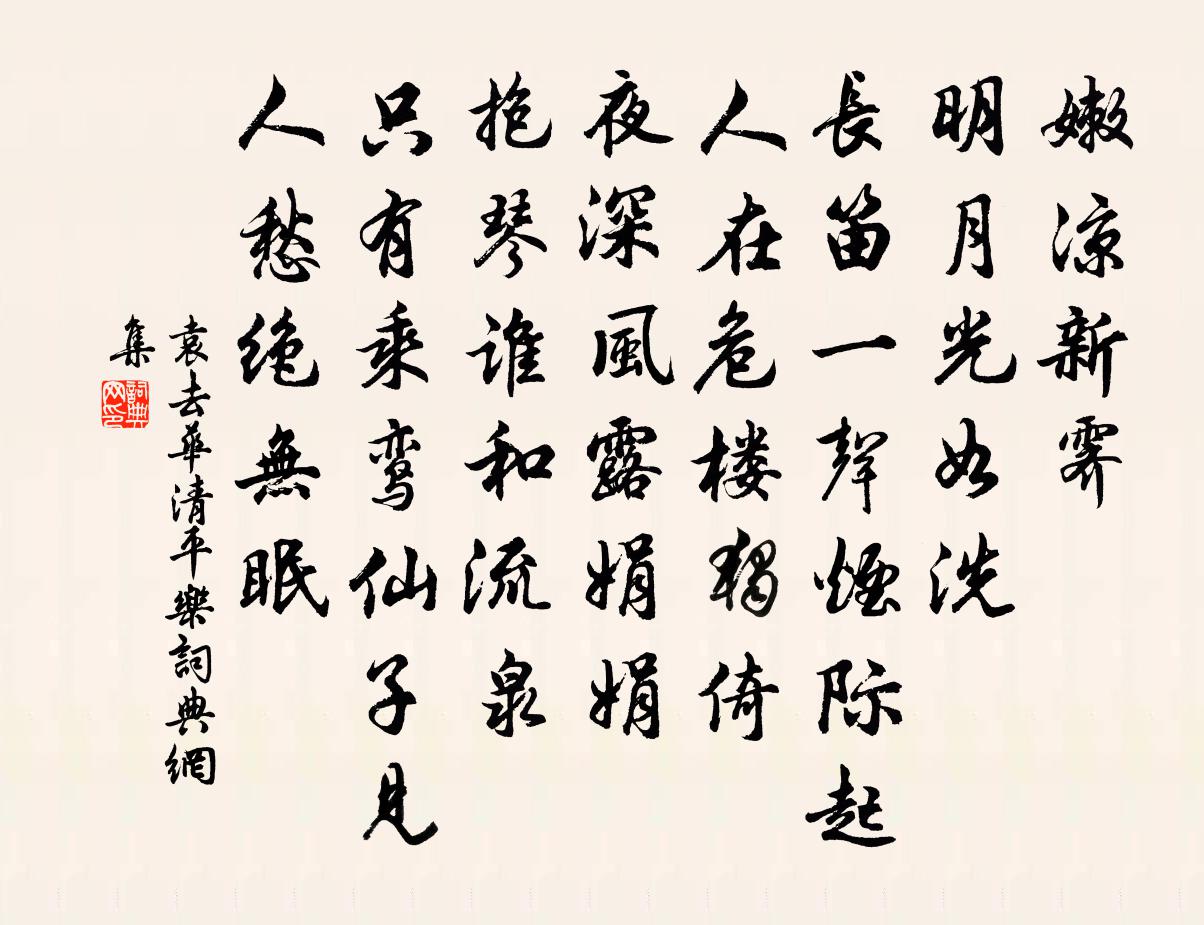 嫩涼新霽
明月光如洗
長笛一聲煙际起
人在危楼獨倚
夜深風露娟娟
抱琴谁和流泉
只有乘鸾仙子見
人愁绝無眠
袁去華清平樂詞典網
集
詞典网印